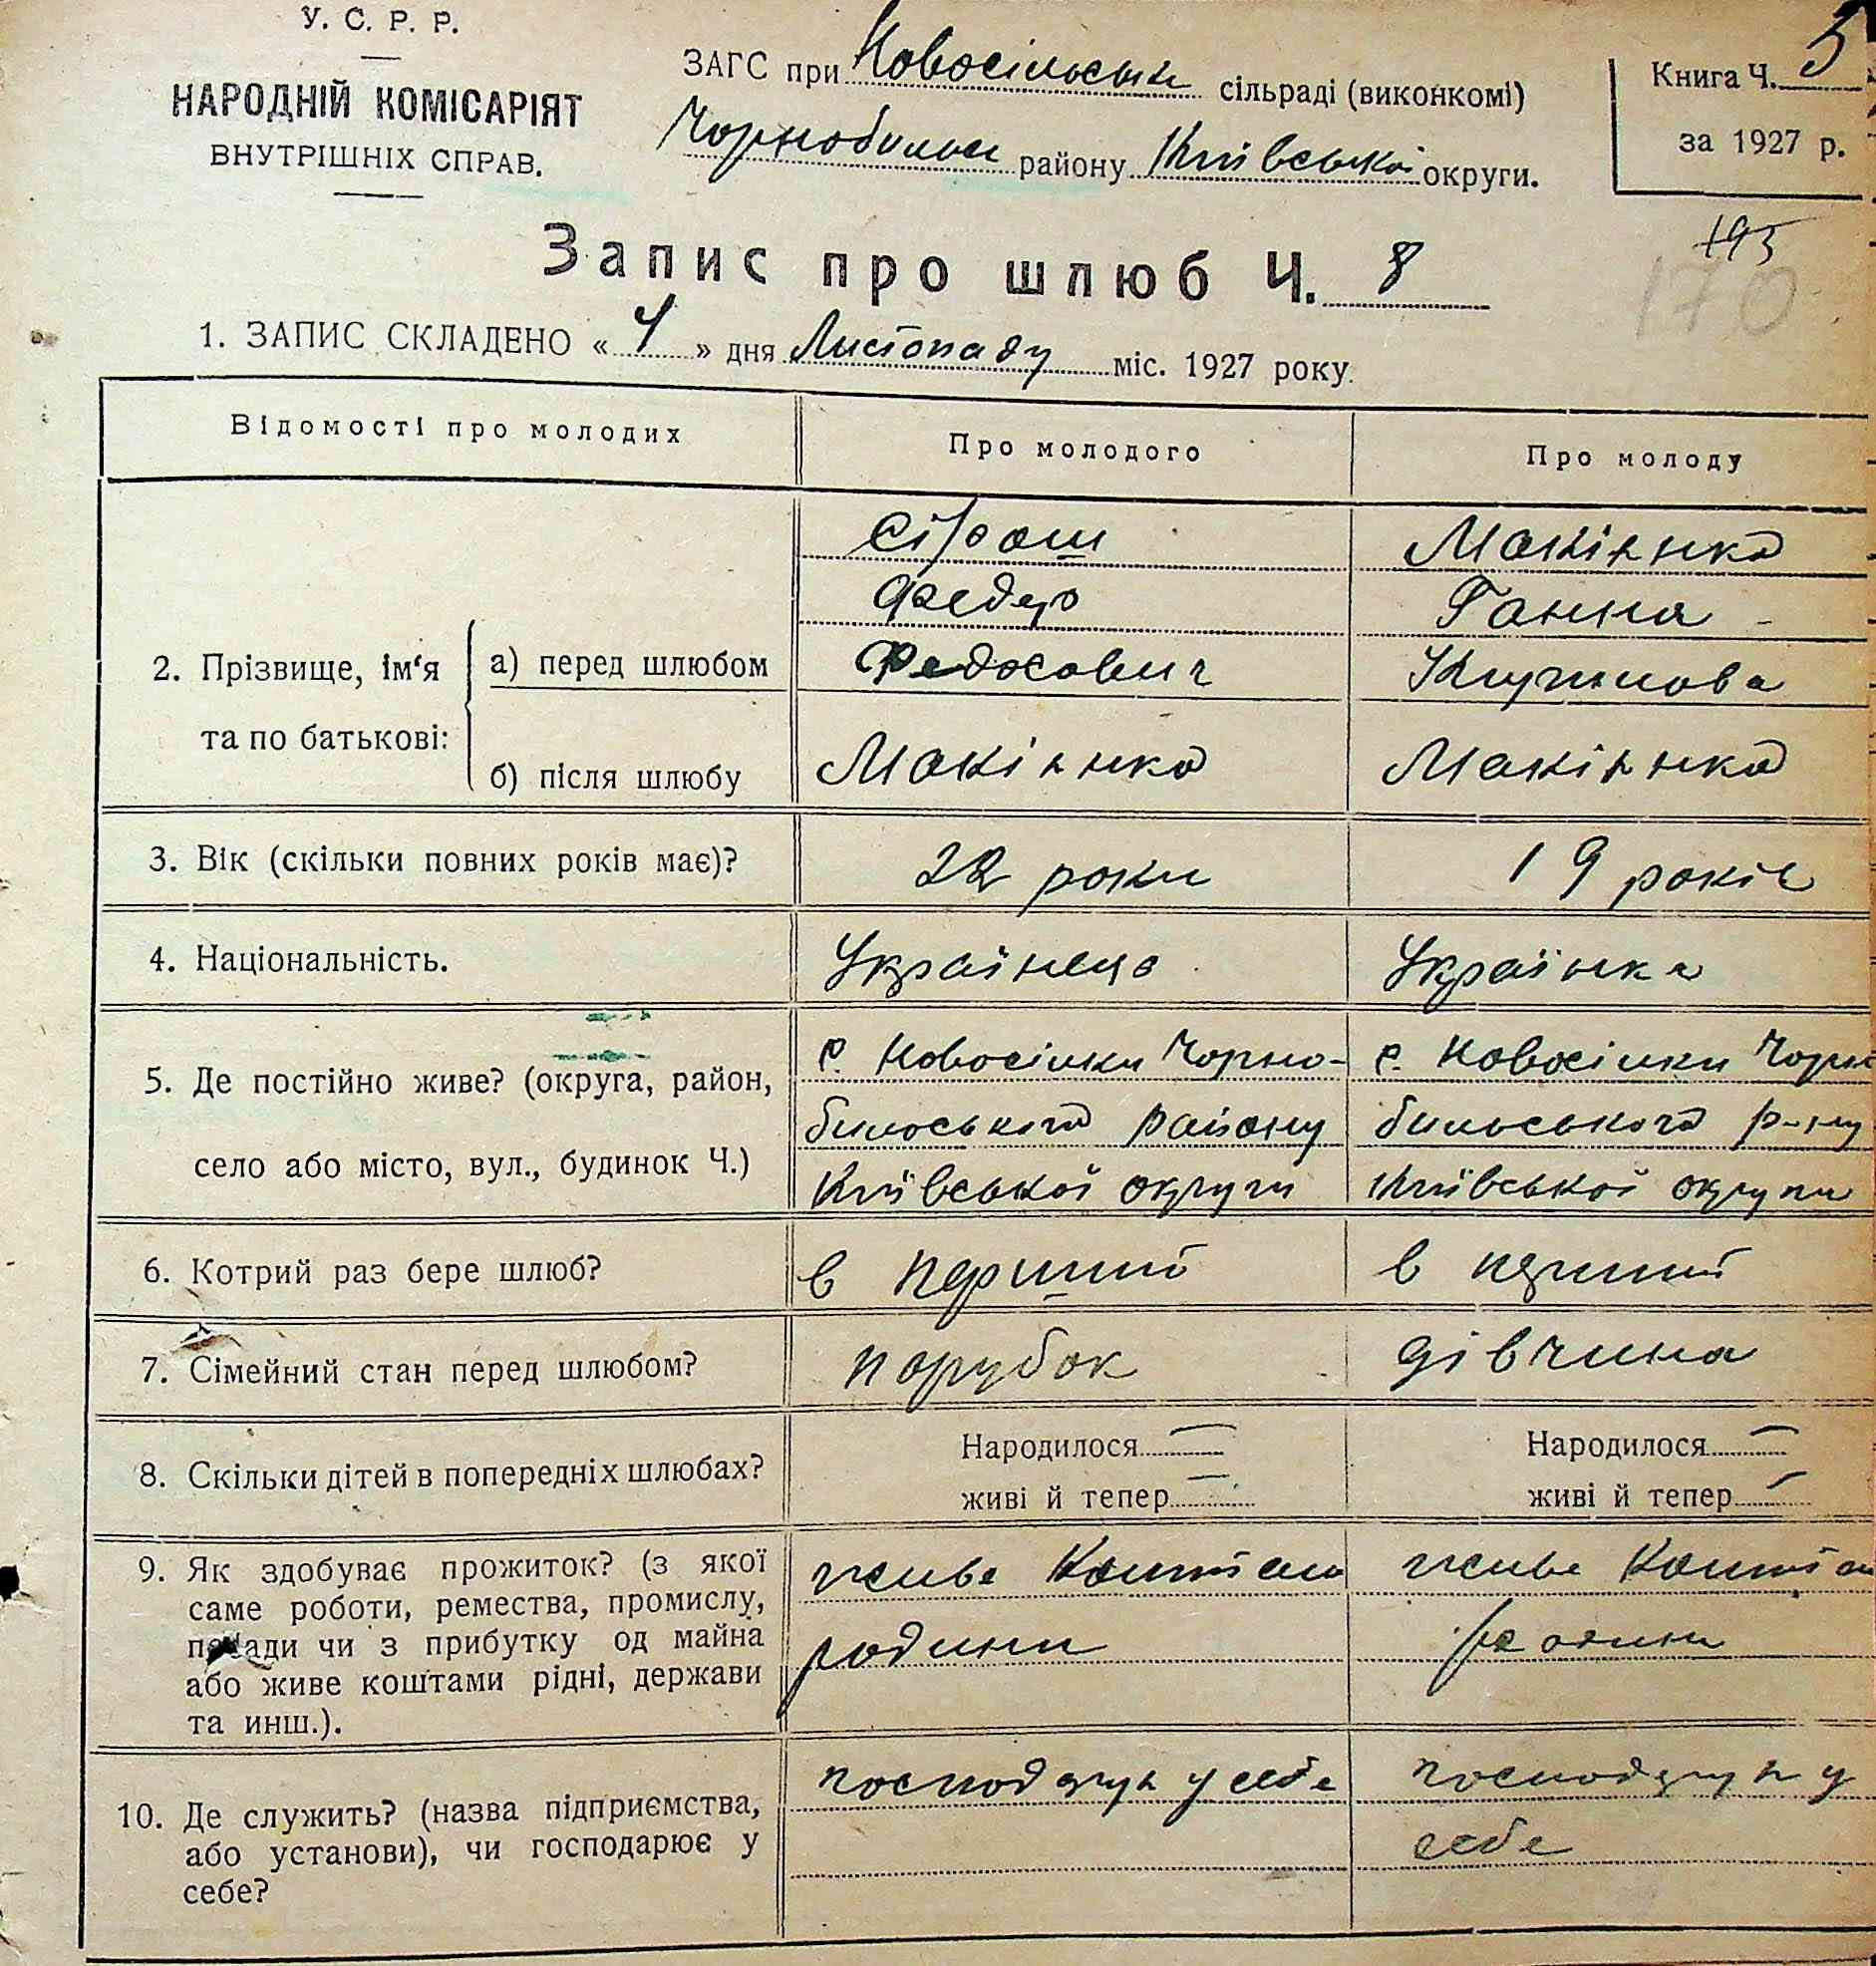 У. С. Р. Р.
НАРОДНІЙ КОМІСАРІЯТ
ВНУТРІШНІХ СПРАВ.
ЗАГС при Новосільськи сільраді (виконкомі)
району Київської округи.
Книга Ч. 5
за 1927 р.
195
170
Запис про шлюб Ч. 8
1. ЗАПИС СКЛАДЕНО « 4 » дня Листопаду міс. 1927 року.
Відомості про молодих
Про молодого
Про молоду
2. Прізвище, ім‘я та по батькові:
а) перед шлюбом
Федосович
Ганна
б) після шлюбу
3. Вік (скільки повних років має)?
22 роки
19 років
4. Національність.
Українець
Українка
5. Де постійно живе? (округа, район,
село або місто, вул., будинок Ч.)
с. Новосілки Чорно-
бильського району
Київської округи
с. Новосілки Чорн
бильського р-ну
Київської округи
6. Котрий раз бере шлюб?
в перший
в перший
7. Сімейний стан перед шлюбом?
парубок
дівчина
8. Скільки дітей в попередніх шлюбах?
Народилося —
живі й тепер —
Народилося —
живі й тепер —
9. Як здобуває прожиток? (з якої
саме роботи, ремества, промислу,
посади чи з прибутку од майна
або живе коштами рідні, держави
та инш.).
живе коштам
родини
живе коштам
родини
10. Де служить? (назва підприємства,
або установи), чи господарює у
себе?
у себе
у
себе